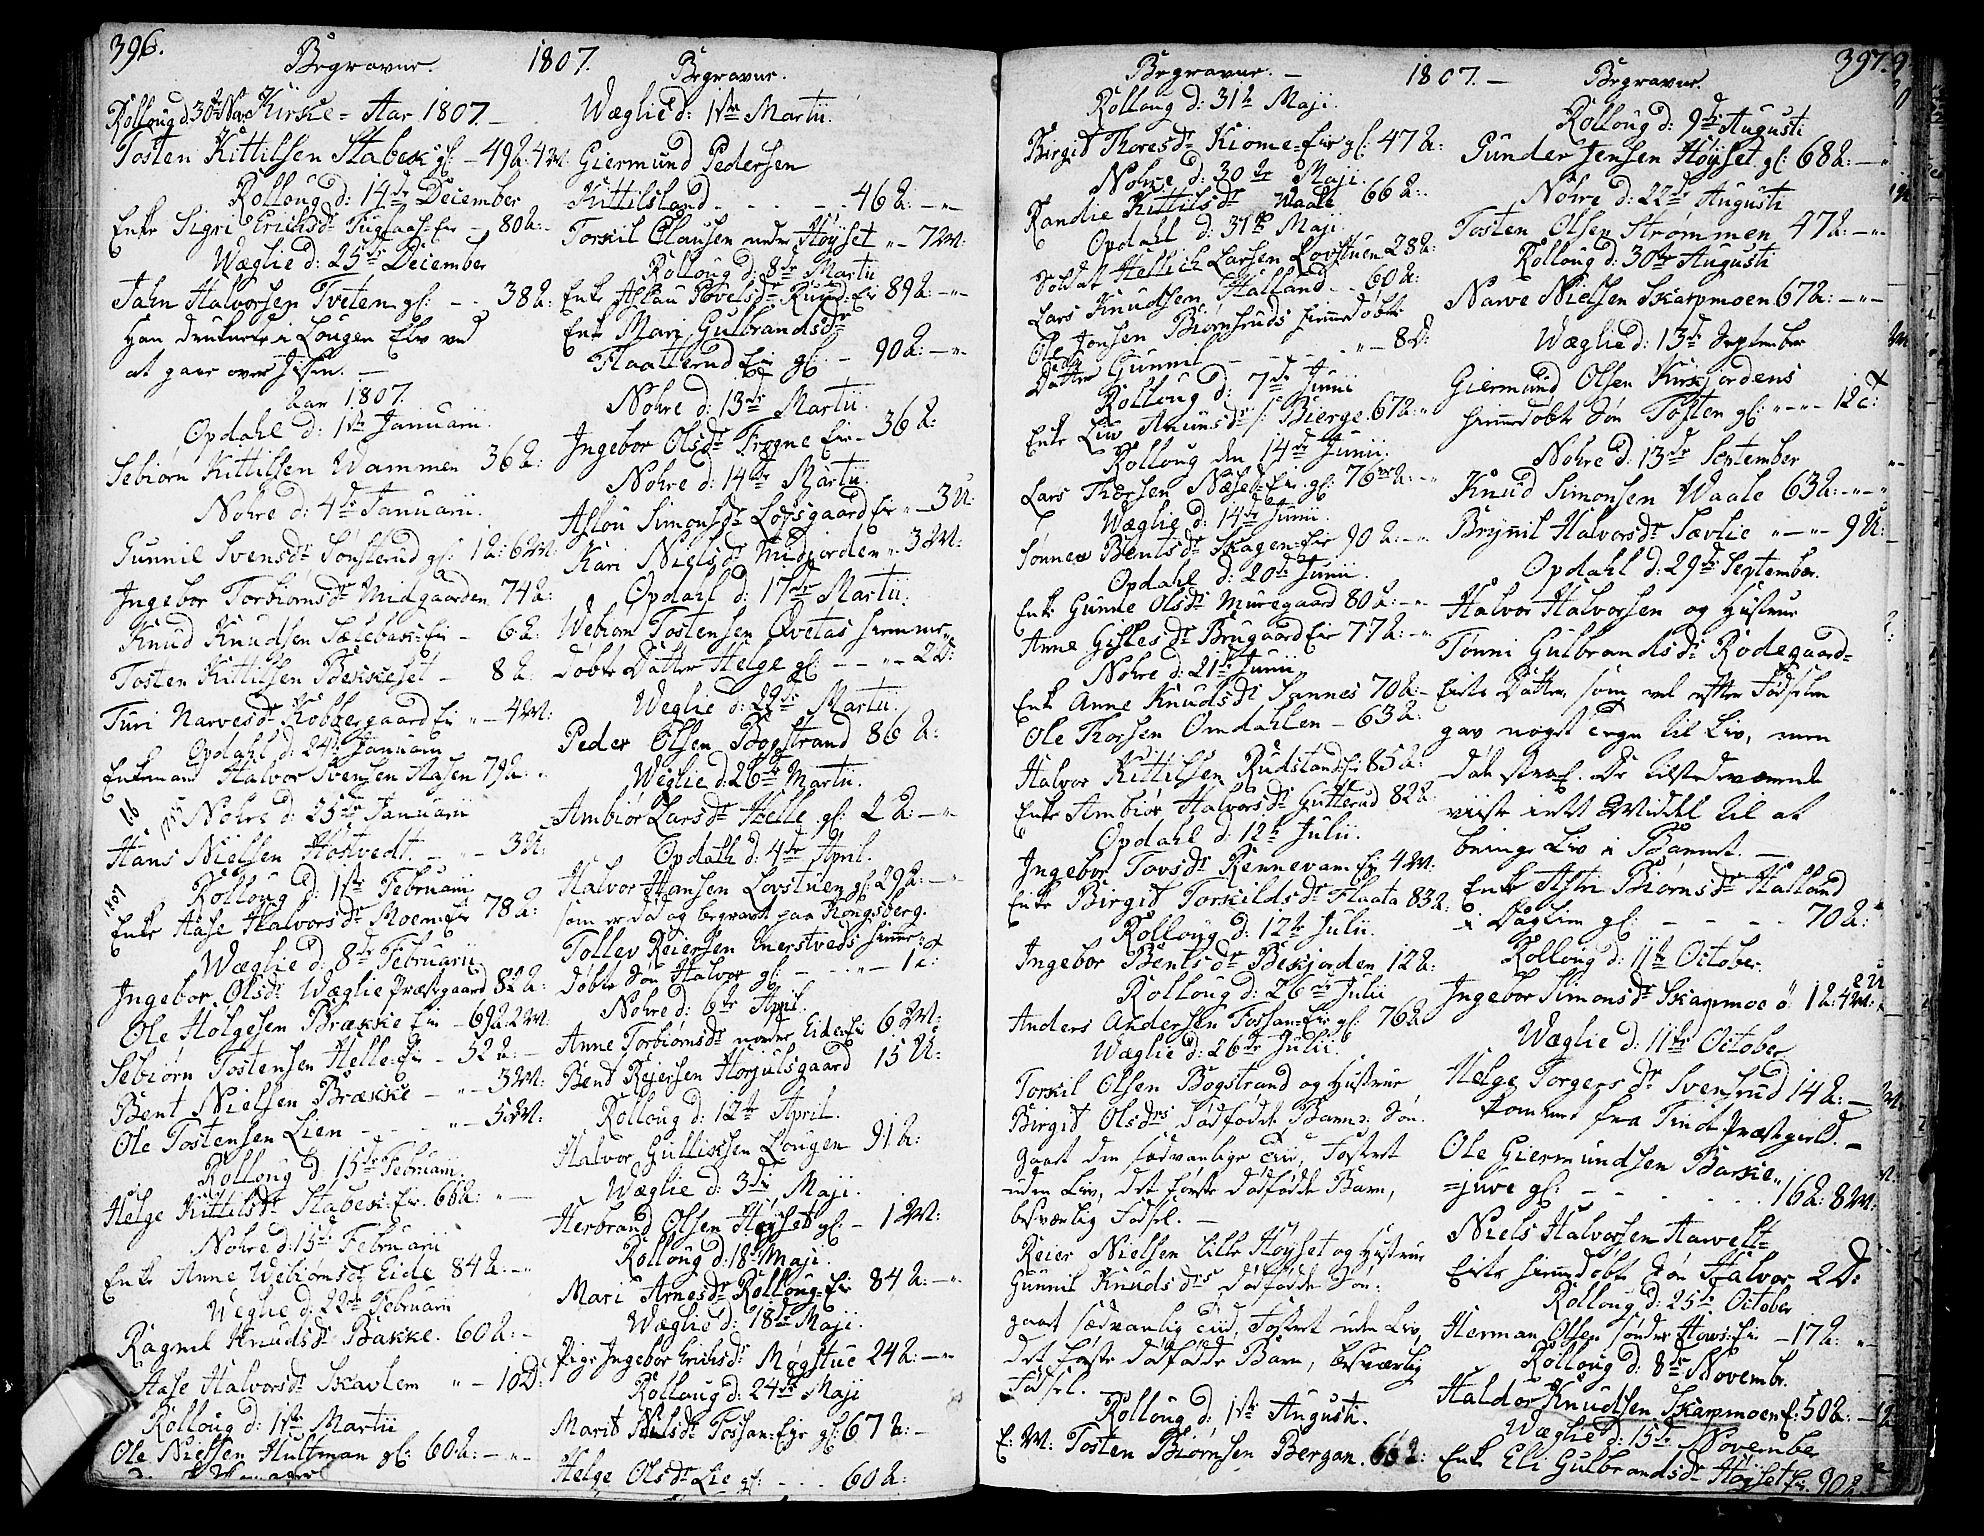 396.
Begravne. 1807. Begravne.
Rolloug d. 30te Nov. Kirke-Aar 1807.
Tosten Kittilsen Stabek gl: - 49 A: 4 M.
Rolloug d: 14de December
Enke Sigri Erichsdr - 80 A:
Wæglie d: 25de December
Jahn Halvorsen Tveten gl: - - 38 A:
Han druknede i Lougen Elv ved
at gaae over Isen. -
Aar 1807.
Opdahl d: 1ste Januarii.
Sebiørn Kittilsen Wammen 36 A:
Nohre d: 4de Januarii.
Gunnil Svensdr Sønsterud gl: 1 A: 6 M.
Ingebor Torbiornsdr Midgaarden 74 A:
Knud Knudsen Sælebak: Eie - 6 A:
Tosten Kittilsen Bekkeset - 8 A:
Turi Narvesdr Kobbergaard Eie " - 4 M:
Opdahl d: 24de Januarii
Enkemand Halvor Svensen Aasen 79 A:
Nohre d: 25de Januarii
Hans Nielsen Hotvedt - " - 3 U:
1807
Rolloug d: 1ste Februarii
Enke Aase Halvorsdr Moen: Eie 78 A:
Wæglie d: 8de Februarii
Ingebor Olsdr Wæglie Præstegaard 82 A:
Ole Holgesen Brække Eie - 69 A: 2 M:
Sebiørn Tostensen Helle: Eie - 52 A: -
Bent Nielsen Brække - " - 3 M:
Ole Tostensen Lien - - - " - 5 M:
Rolloug d: 15de Februarii.
Helge Kittilsdr Stabek: Eie. 66 A: " -
Nohre d: 15de Februarii
Enke Anne Webiørnsdr Eide 84 A: - "
Weglie d: 22de Februarii
Ragnil Knudsdr Bakke. 60 A: -
Aase Halvorsdr Skavlem " - 10 D:
Rolloug d: 1ste Martii
Ole Nielsen Hultman gl: 60 A: - " -
Wæglie d: 1ste Martii.
Giermund Pedersen
Kittilsland - - - - - 46 A: - " -
Torkil Clausen nedre Høyset " - 7 M:
Rolloug d: 8de Martii
Enke Aslau Povelsdr Ruud: Eie 89 A: - " -
Enke Mari Gulbrandsdr
Flaaterud Eie gl: - 90 A: - " -
Nohre d: 13de Martii.
Ingebor Olsdr Frogne Eie - 36 A:
Nohre d: 14de Martii.
Aslou Simonsdr Lofsgaard Eie " - 3 U:
Kari Nielsdr Midjorden " - 3 M:
Opdahl d: 17de Martii.
Webiørn Tostensen Qvetas hiemme-
døbte Datter Helge gl: - - " - 2 D:
Weglie d: 22de Martii.
Peder Olsen Bogstrand 86 A:
Weglie d: 26de Martii.
Ambiør Larsdr Helle gl: 2 A: - "
Opdahl d: 4de April.
Halvor Hansen Lovstuen gl: 29 A: - "
som er død og begravet paa Kongsberg.
Tollev Reiersen Enerstvedts hiemme-
døbte Søn Halvor gl: - - " - 1 U:
Nohre d: 6te April.
Anne Torbiørnsdr nordre Eide: Eie 6 M:
Bend Reiersen Horjulsgaard 15 U:
Rolloug d: 12te April.
Halvor Gulliksen Lougen 91 A:
Wæglie d: 3die Maji.
Herbrand Olsen Høyset gl: - 1 M:
Rolloug d: 18de Maji.
Mari Arnesdr Rolloug: Eie 84 A: - "
Wæglie d: 18de Maji.
Pige Ingebor Erichsdr Møgstue 24 A: - "
Rolloug d: 24de Maji
Marit Nilsdr Fossan: Eie gl: 67 A: -
Helge Olsdr Lie gl: - - - 60 A:
Begravne. - 1807. - Begravne. 397.
Rolloug d: 31te Maji.
Birgit Thoresdr Kiome: Eie gl: 47 A:
Nohre d: 30te Maji.
Randie Kittilsdr Waale 66 A:
Opdahl d: 31te Maji.
Soldat Hellich Larsen Lovstuen 28 A:
Lars Knudsen Halland - - 60 A:
Ole Jonsen Biørnsruds hiemedøbte
Datter Gunnil - - - - " - 8 D:
Rolloug d: 7de Junii
Enke Liv Amunsdr s: Bierge 67 A: "
Rolloug den 14de Junii.
Lars Thorsen Næset: Eie gl: 76 A: - "
Wæglie d: 14de Junii.
Sønnev Bentsdr Skagen: Eie 90 A: - "
Opdahl d: 20de Junii.
Enke Gunne Olsdr Muregaard 80 A: - "
Anne Gislesdr Brugaard Eie 77 A: - "
Nohre d: 21de Junii
Enke Anne Knudsdr Synnes 70 A: -
Ole Thorsen Omdahlen - 63 A:
Halvor Kittilsen Rudstand: Eie 85 A:
Enke Ambiør Halvorsdr Gutterud 82 A:
Opdahl d: 12te Julii.
Ingebor Tovsdr Kennevam: Eie 4 M:
Enke Birgit Torkildsdr Flaata 83 A:
Rolloug d: 12te Julii.
Ingebor Bentsdr Bekjorden 12 A:
Rolloug d: 26de Julii
Anders Andersen Fossan: Eie gl: 76 A:
Wæglie d: 26de Julii.
Torkil Olsen Bogstrand og Hustrue
Birgit Olsdrs dødfødte Barn: Søn.
gaaet den sædvanlige Tiid, Fostret
uden Liv, det første dødfødde Barn,
besværlig Fødsel. -
Reier Nielsen lille Høyset og Hustrue
Gunnil Knudsdrs dødfødde Søn:
gaaet sædvanlig Tiid, Fostret uden Liv,
det første dødfødde Barn, besværlig
Fødsel.
Rolloug d: 1ste Augusti.
E: M: Tosten Biørnsen Bergan. 63 A:
Rolloug d: 9de Augusti
Gunder Jensen Høyset gl: 68 A: - "
Nohre d: 22de Augusti
Tosten Olsen Strømmen 47 A: - "
Rolloug d: 30te Augusti
Narve Nielsen Skarpmoen 67 A: - " -
Wæglie d: 13de September
Giermund Olsen Kirkjordens
hiemedøbte Søn Tosten gl: " - " - 12 U:
Nohre d: 13de September
Knud Simonsen Waale 63 A: - " - "
Brynil Halvorsdr Sævlie " - " - 9 U:
Opdahl d: 29de September.
Halvor Halvorsen og Hustrue
Tønni Gulbrandsdr Rodegaard-
Eiets Datter, som vel efter Fødselen
gav noget Tegn til Liv, men
døde strax. De tilstedeværende
viiste intet Middel til at
bringe Liv i Barnet. -
Enke Astri Biørnsdr Halland
i Daglien gl: - - - - 70 A:
Rolloug d: 11te October.
Ingebor Simonsdr Skarpmoe 1 A: 4 M:
Wæglie d: 11te October
Helge Torgersdr Svensrud 14 A: -
kommet fra Tinds Præstegield. -
Ole Giermundsen Barske-
=juve gl: - - - - 16 A: 8 M:
Niels Halvorsen Aawelt-
Eiets hiemdøbte Søn Halvor 2 D:
Rolloug d: 25de October
Herman Olsen søndre Hows: Eie - 17 A: "
Rolloug d: 8de Novembr.
Haldor Knudsen Skarpmoen E: 50 A: -
Wæglie d: 15de November
Enke Eli Gulbrandsdr Høyset Eie. 90 A: